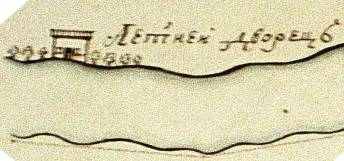 Лѣтнеи дворецъ